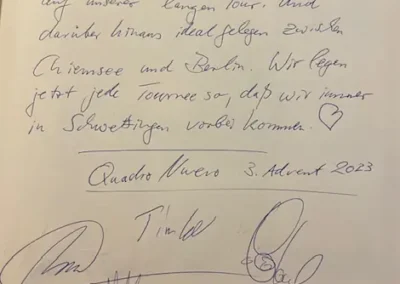 auf unserer langen Tour. Und
darüber hinaus ideal gelegen zwischen
Chiemsee und Berlin. Wir legen
jetzt jede Tournee so, daß wir immer
in Schwetzingen vorbei kommen. ♡
Quadro Nuevo 3. Advent 2023